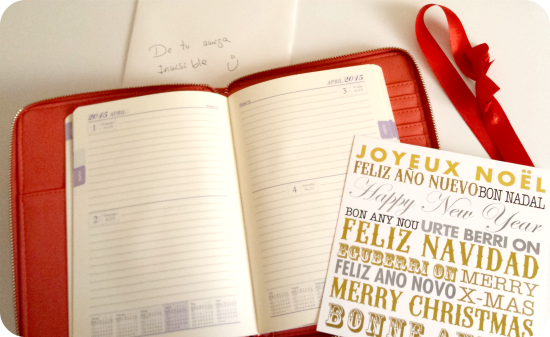 De tu amiga
Invisible
2015 APRIL
1
2
APRIL 2015
3
4
JOYEUX NOËL
FELIZ AÑO NUEVO BON NADAL
Happy New Year
BON ANY NOU URTE BERRI ON
FELIZ NAVIDAD
EGUBERRI ON MERRY
FELIZ ANO NOVO X-MAS
MERRY CHRISTMAS
BONNE